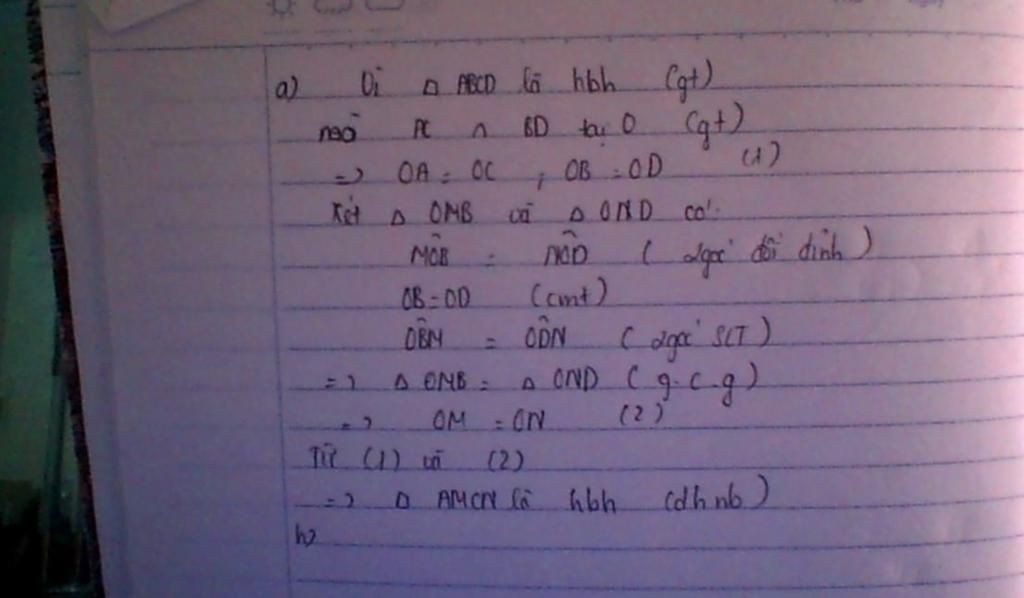 a) Vì □ ABCD là hbh (gt)
mà AC ∩ BD tại O (gt)
=> OA = OC ; OB = OD (1)
Xét △ OMB và △ OND có:
MÔB = NÔD ( 2 góc đối đỉnh )
OB = OD (cmt)
OB̂M = OD̂N ( 2 góc SLT )
=> △ OMB = △ OND ( g.c.g )
=> OM = ON (2)
Từ (1) và (2)
=> □ AMCN là hbh (dhnb)
b)